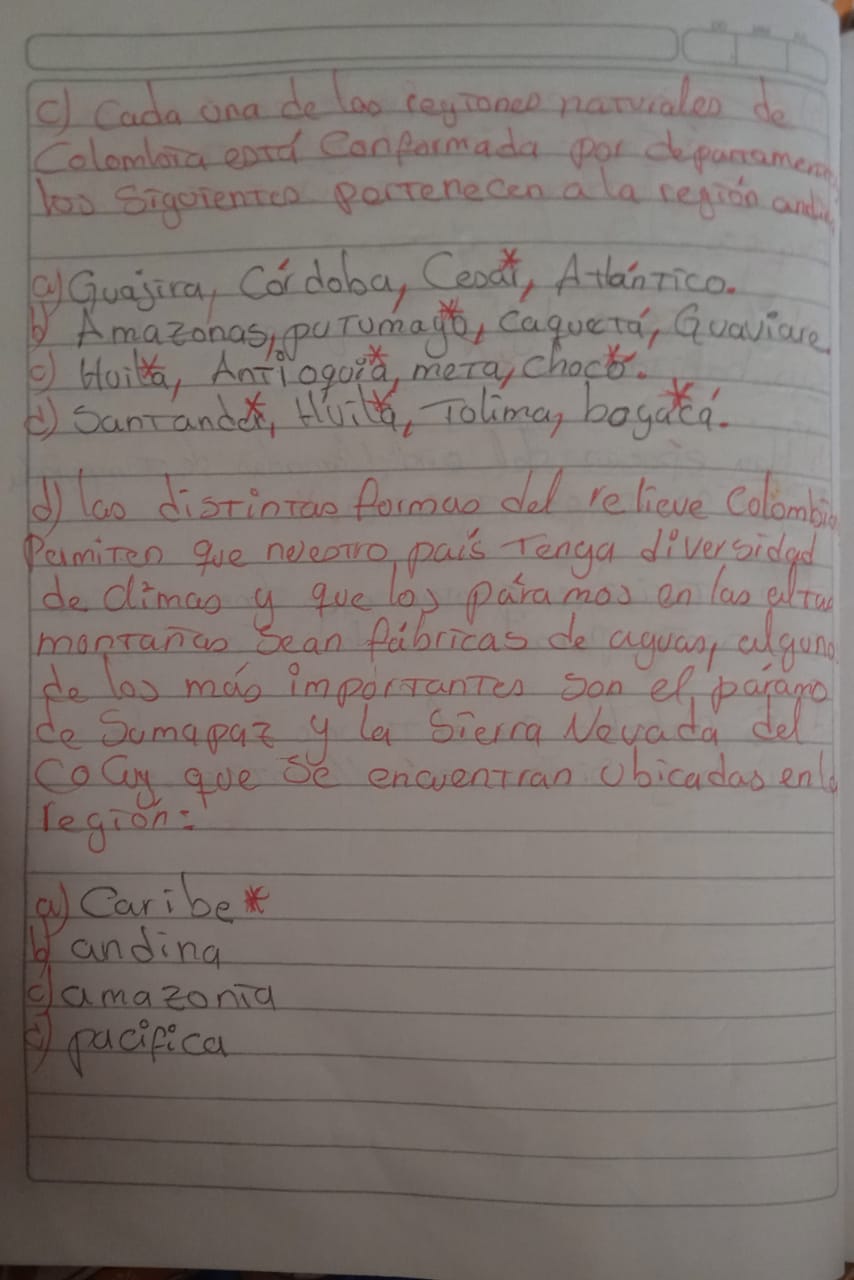 c) Cada una de las regiones naturales de
Colombia está Conformada por departamen
los Siguientes pertenecen a la región andi
a) Guajira, Córdoba, Cesar, Atlántico.
b) Amazonas, putumayo, caquetá, Guaviare.
c) Huila, Antioquia, meta, chocó.
d) Santander, Huila, Tolima, boyacá.
d) las distintas formas del relieve Colombia
Permiten que nuestro país Tenga diversidad
de climas y que los páramos en las altas
montañas Sean fábricas de aguas, alguno
de los más importantes son el páramo
de Sumapaz y la Sierra Nevada del
CoCuy que se encuentran Ubicadas en la
región:
a) Caribe *
b) andina
c) amazonia
d) pacifica